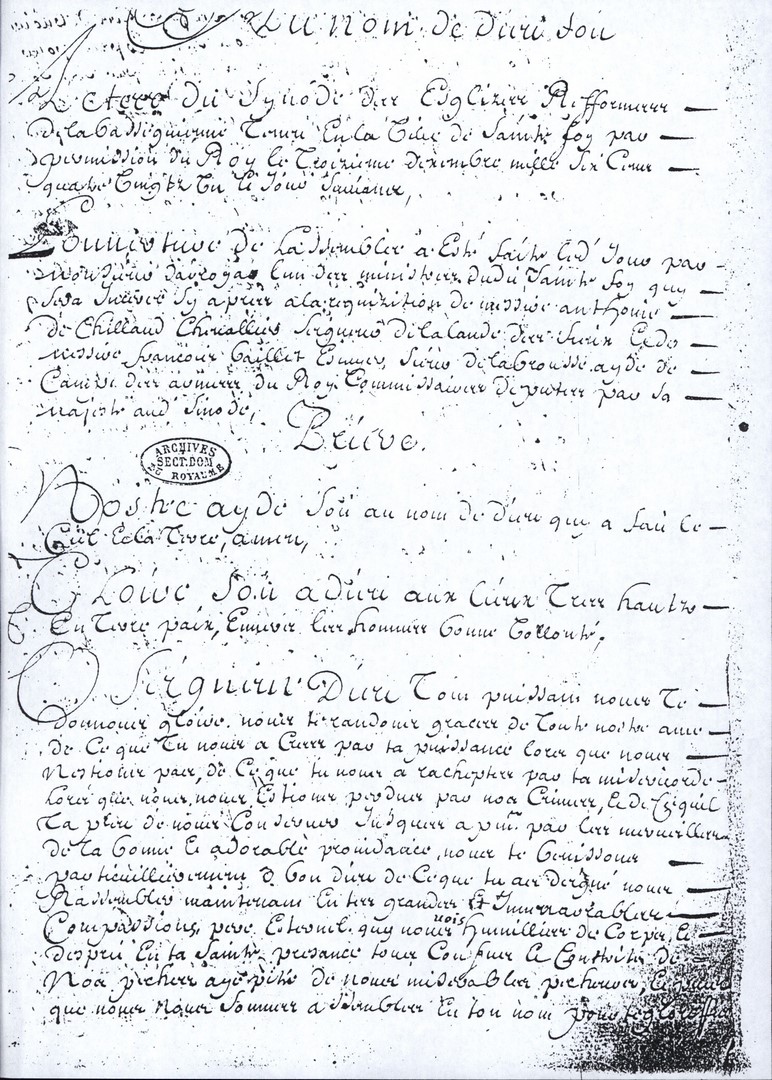 Au nom de dieu soit
Actes du Synode des Esglizes Refformees
de la basse guienne Tenu En la Ville de Sainte foy par
permission du Roy le Troizieme decembre mille Six Cens
quatre Vingtz Un le Jour
Louverture de Lassemblee a Esté faite led Jour par
monsieur lun des ministres dudit Sainte foy quy
sera Inseree Cy apres a la requizition de messire anthoine
de Chillaud Chevallier Seigneur de la lande des Et de
messire francois baillet Escuyer, Sieur de labrousse ayde de
Camp des armees du Roy Commissaires deputes par Sa
majesté aud Sinode,
Priere.
ARCHIVES
SECT. DOM
DU ROYAUME
Nostre ayde Soit au nom de dieu quy a fait le
Ciel Et la Terre, amen,
Gloire Soit a dieu aux Cieux Tres hautz
En Terre paix, Envers les hommes bonne Vollonté,
O Seigneur Dieu Tout puissant nous Te
donnons gloire. nous te randons graces de Toute nostre ame
de Ce que Tu nous a Crees par ta puissance lors que nous
Nestions pas, de Ce que tu nous a racheptes par ta misericorde
Lors que nous, nous, Estions perdus par nos Crimes, Et de Cequil
Ta pleu de nous Conserver Jusques a pnt par les merveilles
de ta bonne Et adorable providance, nous te benissons
particulierement O bon dieu de Ceque tu as daigné nous
Rassembler maintenant En tes grandes Et Innumerables
Compassions, pere Eternel, quy nous vois humillies de Corps, Et
desprit En ta Sainte presance tous Confus Et Contrits de
Nos peches aye pitié de nous miserables pecheurs, Et
que nous nous Sommes assembles En ton nom pour te glorifier